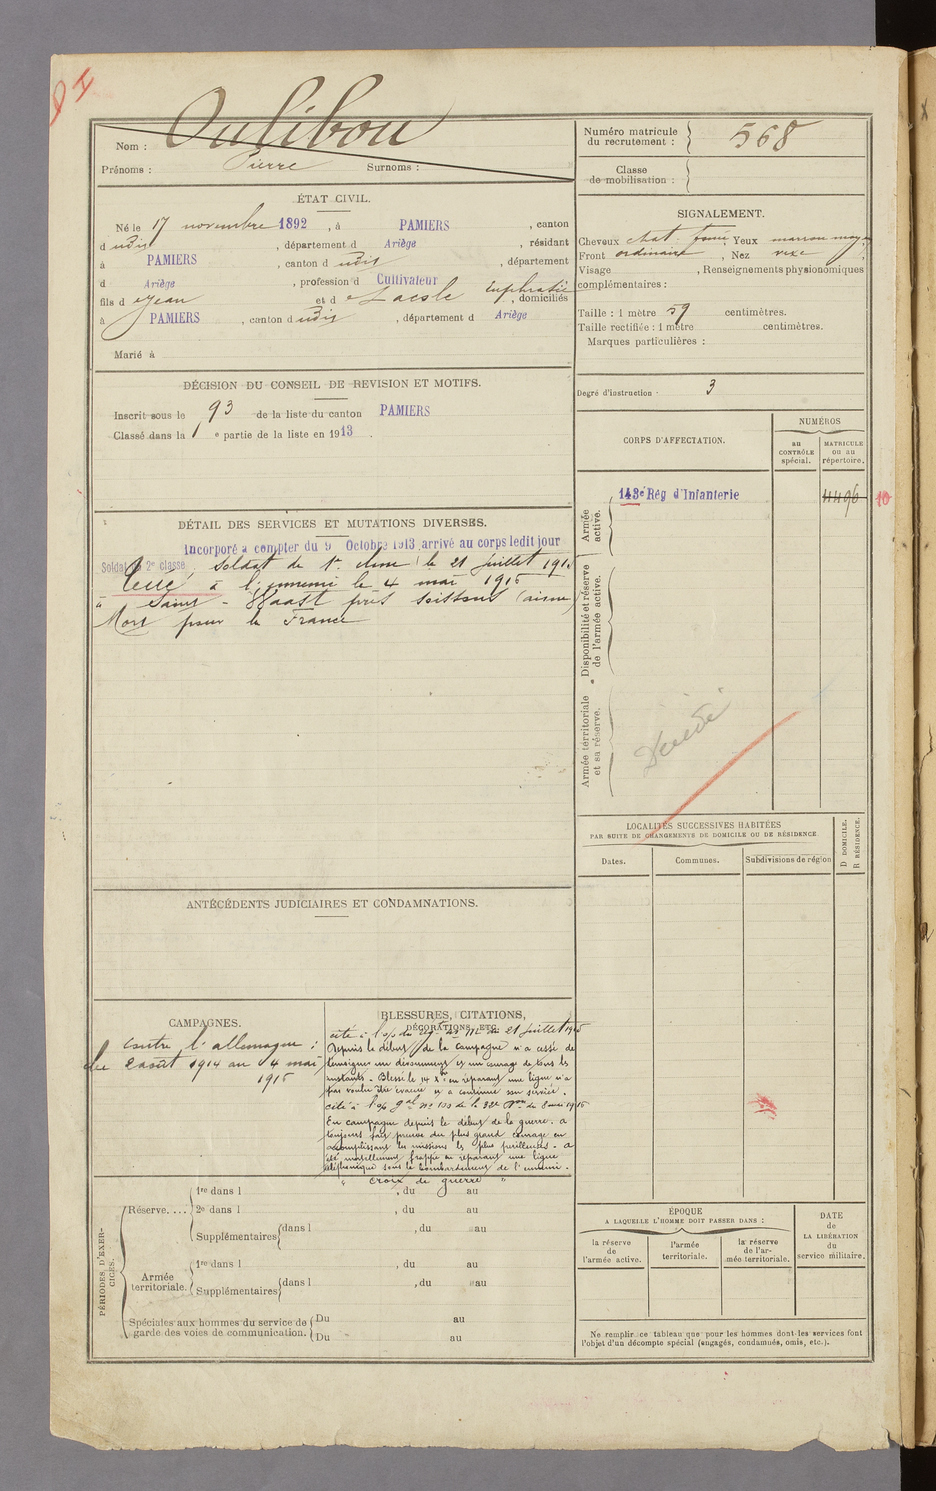 Oulibou
Nom :
Prénoms : Pierre Surnoms :
ÉTAT CIVIL.
Né le 17 novembre 1892, à PAMIERS, canton
d udis, département d Ariège, résidant
à PAMIERS, canton d udis, département
d Ariège, profession d Cultivateur
fils d e Jean et d e Euphrasie, domiciliés
à PAMIERS, canton d udis, département d Ariège
Marié à
DÉCISION DU CONSEIL DE REVISION ET MOTIFS.
Inscrit sous le n° 93 de la liste du canton PAMIERS
Classé dans la 1e partie de la liste en 1913.
DÉTAIL DES SERVICES ET MUTATIONS DIVERSES.
Incorporé à compter du 9 Octobre 1913 arrivé au corps ledit jour
Soldat de 2e classe, Soldat de 1e classe le 21 juillet 1915
Tué à l'ennemi le 4 mai 1916
à Saint-Waast près Soissons (aisne)
Mort pour la France
ANTÉCÉDENTS JUDICIAIRES ET CONDAMNATIONS.
CAMPAGNES.
Contre l'allemagne :
du 2 août 1914 au 4 mai
1916
BLESSURES, CITATIONS,
DÉCORATIONS, ETC.
cité à l'o/ du 21 juillet 1915
Depuis le début de la campagne n'a cessé de
témoigner un dévouement et un courage de tous les
instants. Blessé le 14 en réparant une ligne n'a
pas voulu être évacué et a continué son service.
cité à l'o/ gal n° 100 de la 32e Don du 8 mai 1916
En campagne depuis le début de la guerre. a
toujours fait preuve du plus grand courage en
accomplissant les missions les plus périlleuses. a
été mortellement frappé en réparant une ligne
téléphonique sous le bombardement de l'ennemi.
" Croix de guerre "
PÉRIODES D'EXERCICES.
Réserve....
1re dans l , du au
2e dans l , du au
Supplémentaires dans l , du au
Armée territoriale.
1re dans l , du au
Supplémentaires dans l , du au
Spéciales aux hommes du service de garde des voies de communication.
Du au
Du au
Numéro matricule du recrutement : 568
Classe de mobilisation :
SIGNALEMENT.
Cheveux chat. foncé Yeux marron moyen
Front ordinaire, Nez
Visage , Renseignements physionomiques
complémentaires :
Taille : 1 mètre 59 centimètres.
Taille rectifiée : 1 mètre centimètres.
Marques particulières :
Degré d'instruction · 3
CORPS D'AFFECTATION.
NUMÉROS
au CONTRÔLE spécial.
MATRICULE ou au répertoire.
Armée active.
143e Rég d'Infanterie 4496 10
Disponibilité et réserve de l'armée active.
Armée territoriale et sa réserve.
Décédé
LOCALITÉS SUCCESSIVES HABITÉES
PAR SUITE DE CHANGEMENTS DE DOMICILE OU DE RÉSIDENCE.
Dates.
Communes.
Subdivisions de région
D DOMICILE.
R RÉSIDENCE.
ÉPOQUE
A LAQUELLE L'HOMME DOIT PASSER DANS :
la réserve de l'armée active.
l'armée territoriale.
la réserve de l'armée territoriale.
DATE
de
LA LIBÉRATION
du
service militaire.
Ne remplir ce tableau que pour les hommes dont les services font
l'objet d'un décompte spécial (engagés, condamnés, omis, etc.).